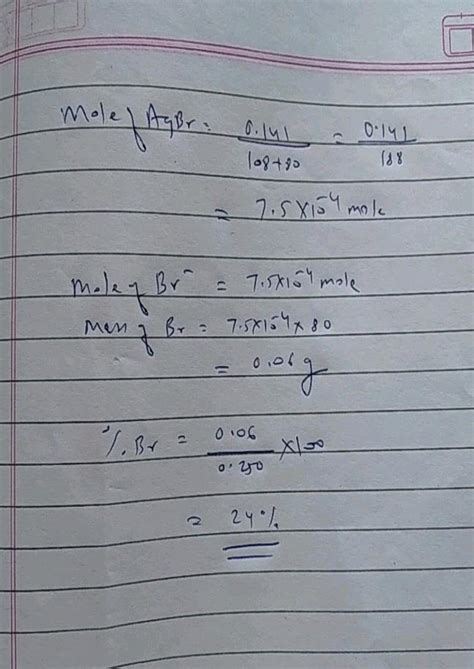 Mole of AgBr = 0.141 / 108+80 = 0.141 / 188
= 7.5×10⁻⁴ mole
Mole of Br⁻ = 7.5×10⁻⁴ mole
Mass of Br = 7.5×10⁻⁴ × 80
= 0.06 g
% Br = 0.06 / 0.250 ×100
= 24%